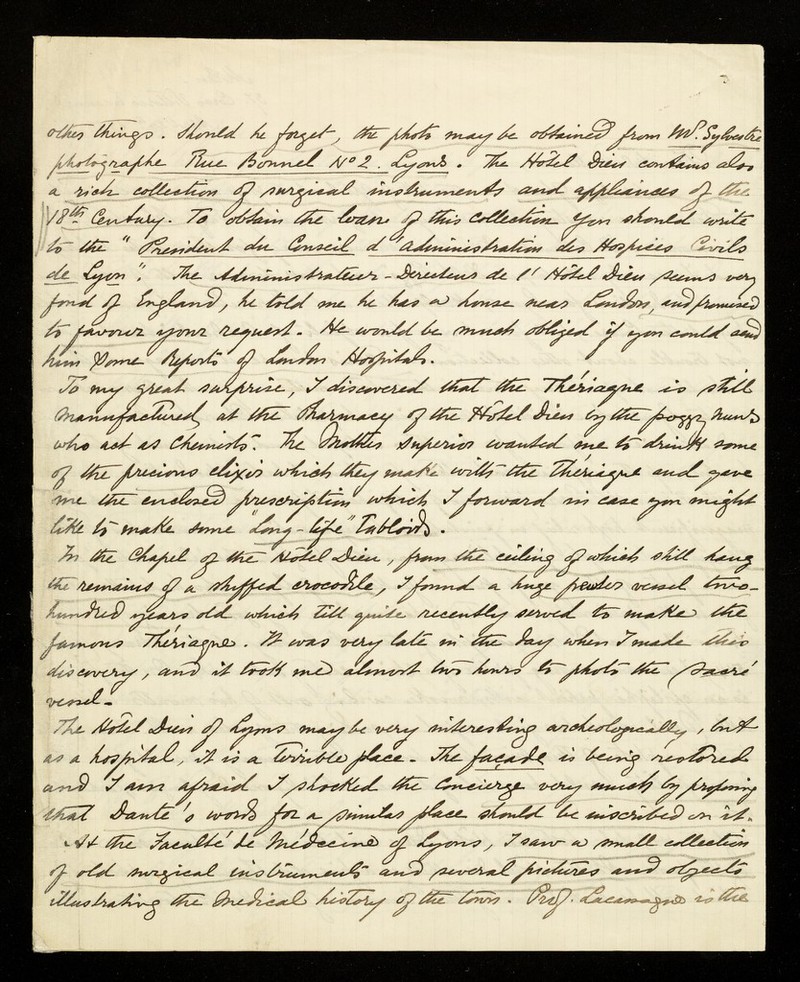 other things. Should he forget, the photo may be obtained from Mr. Sylvestre
photographe Rue Bonnel. No 2. Lyons. The Hôtel Dieu contains also
a rich collection of surgical instruments and appliances of the
18th Century. To obtain the loan of this collection you should write
to the "President du Conseil d'administration des Hospices Civils
de Lyon". The Administrateur-Directeur de l'Hôtel Dieu seems very
fond of England, he told me he has a house near London, and promised
to favour your request. He would be much obliged if you could send
him some Reports of London Hospitals.
To my great surprise, I discovered that the Thériaque is still
manufactured, at the Pharmacy of the Hôtel Dieu by the poggy nuns
who act as Chemists. The Mother Superior wanted me to drink some
of the precious elixir which they make with the Thériaque and gave
me the enclosed prescription which I forward in case you might
like to make some "Long-life" Tabloids.
In the Chapel of the Hôtel Dieu, from the ceiling of which still hang
the remains of a stuffed crocodile, I found a huge pewter vessel two-
hundred years old which till quite recently served to make the
famous Thériaque. It was very late in the day when I made this
discovery, and it took me almost two hours to photo the sacré
vessel-
The Hôtel Dieu of Lyons may be very interesting archeologically, but
as a hospital, it is a terrible place. The façade is being restored
and I am afraid I shocked the Concierge very much by proposing
that Dante's words for a similar place should be inscribed on it.
At the Faculté de Médecine of Lyons, I saw a small collection
of old surgical instruments and several pictures and objects
illustrating the Medical history of the town. Prof. Lacassagne is the